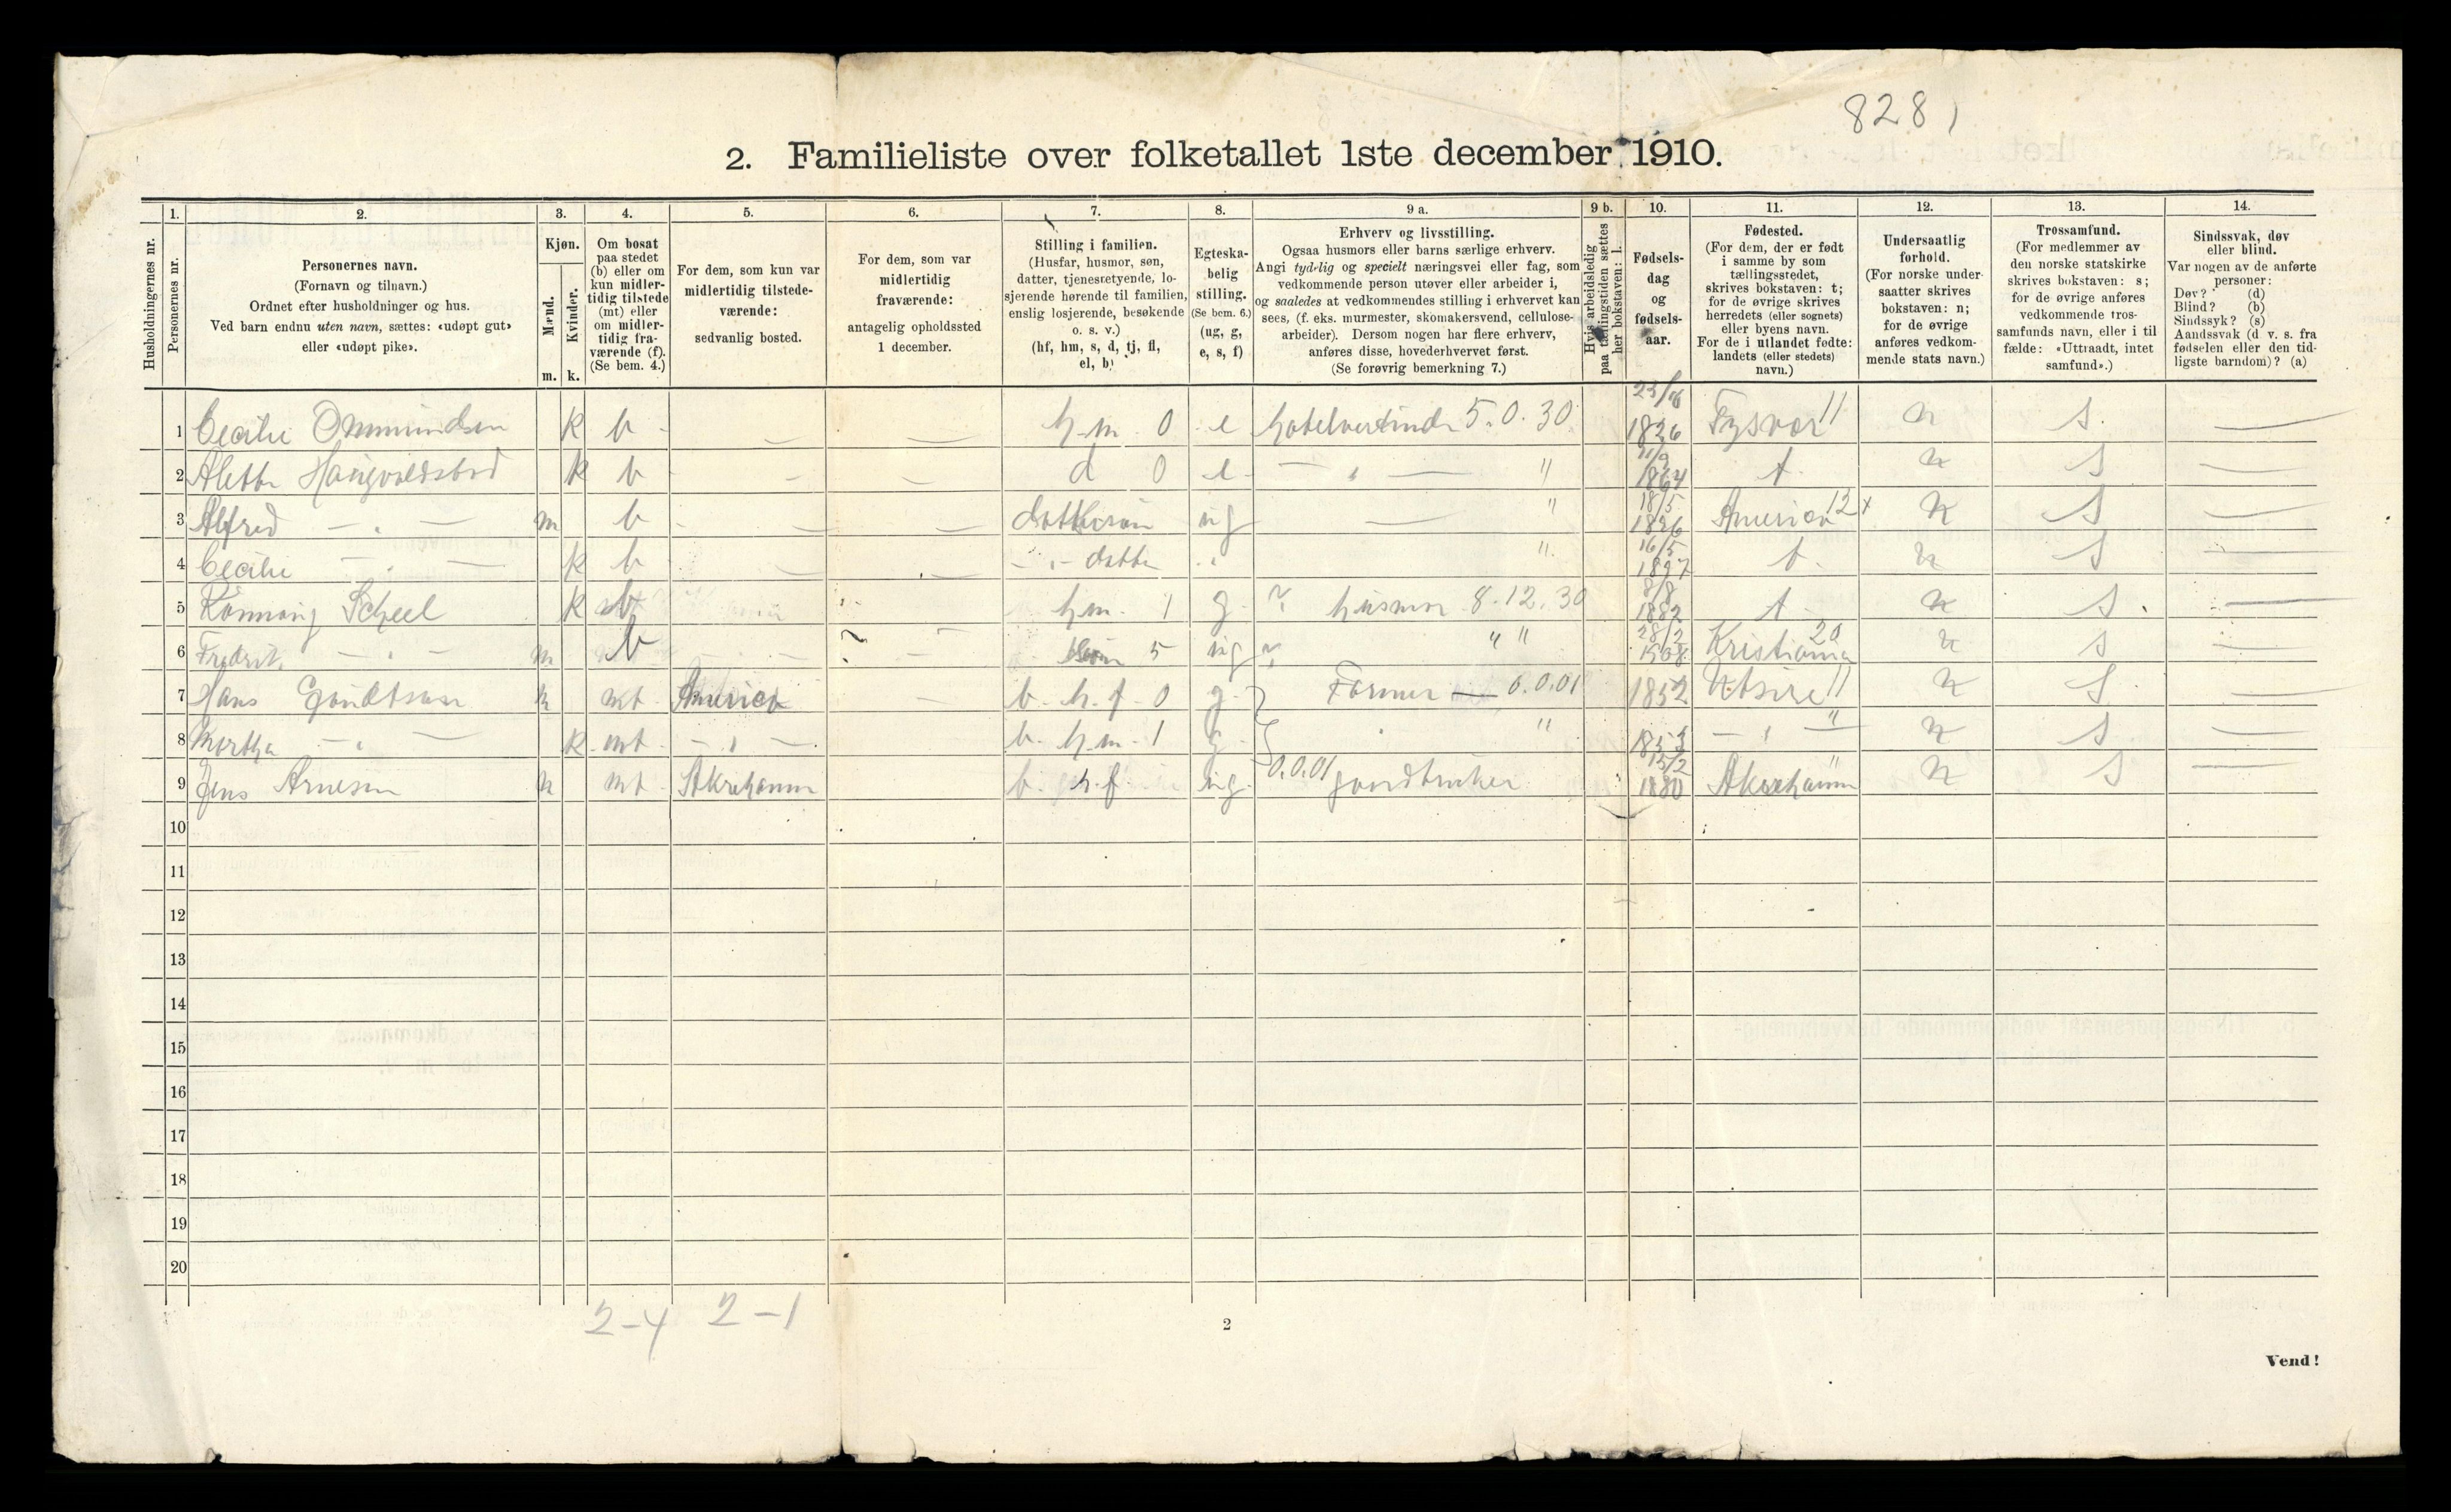 8281
2. Familieliste over folketallet 1ste december 1910.
Husholdningernes nr.
1. Personernes nr.
2. Personernes navn. (Fornavn og tilnavn.) Ordnet efter husholdninger og hus. Ved barn endnu uten navn, sættes: «udøpt gut» eller «udøpt pike».
3. Kjøn. Mænd. m. Kvinder. k.
4. Om bosat paa stedet (b) eller om kun midlertidig tilstede (mt) eller om midlertidig fraværende (f). (Se bem. 4.)
5. For dem, som kun var midlertidig tilstedeværende: sedvanlig bosted.
6. For dem, som var midlertidig fraværende: antagelig opholdssted 1 december.
7. Stilling i familien. (Husfar, husmor, søn, datter, tjenestetyende, losjerende hørende til familien, enslig losjerende, besøkende o. s. v.) (hf, hm, s, d, tj, fl, el, b)
8. Egteskabelig stilling. (Se bem. 6.) (ug, g, e, s, f)
9 a. Erhverv og livsstilling. Ogsaa husmors eller barns særlige erhverv. Angi tydelig og specielt næringsvei eller fag, som vedkommende person utøver eller arbeider i, og saaledes at vedkommendes stilling i erhvervet kan sees, (f. eks. murmester, skomakersvend, cellulosearbeider). Dersom nogen har flere erhverv, anføres disse, hovederhvervet først. (Se forøvrig bemerkning 7.)
9 b. Hvis arbeidsledig paa tællingstiden sættes her bokstaven: l.
10. Fødselsdag og fødselsaar.
11. Fødested. (For dem, der er født i samme by som tællingsstedet, skrives bokstaven: t; for de øvrige skrives herredets (eller sognets) eller byens navn. For de i utlandet fødte: landets (eller stedets) navn.)
12. Undersaatlig forhold. (For norske undersaatter skrives bokstaven: n; for de øvrige anføres vedkommende stats navn.)
13. Trossamfund. (For medlemmer av den norske statskirke skrives bokstaven: s; for de øvrige anføres vedkommende trossamfunds navn, eller i tilfælde: «Uttraadt, intet samfund».)
14. Sindssvak, døv eller blind. Var nogen av de anførte personer: Døv? (d) Blind? (b) Sindssyk? (s) Aandssvak (d. v. s. fra fødselen eller den tidligste barndom)? (a)
1 Cecilie Ommundsen k b — — hm 0 e hotelvertinde 5.0.30 1826 Tysvær 11 n s —
2 k b — — d 0 e — " — " 1864 t n s —
3 Alfred — " — m b — — dattersøn ug — " 18/5 1896 America 12 x n s —
4 Cecilie — " — k b — — — " — datter " " 16/5 1897 t n s —
5 Scheel k b hm 1 g husmor 8.12.30 8/8 1882 t n s —
6 Fredrik — " — m b ? — søn 5 ug " " 28/2 1908 Kristiania 20 n s —
7 Hans m mt America — b. h.f. 0 g Farmer — 0.0.01 1852 Utsire 11 n s —
8 — " — k mt — " — b. hm. 1 g " — " — " n s —
9 Jens Arnesen m mt Akrehamn b. h.f. ug 0.0.01 gaardbruker 15/2 1880 Akrehamn " n s —
10
11
12
13
14
15
16
17
18
19
20
2-4 2-1
2
Vend!